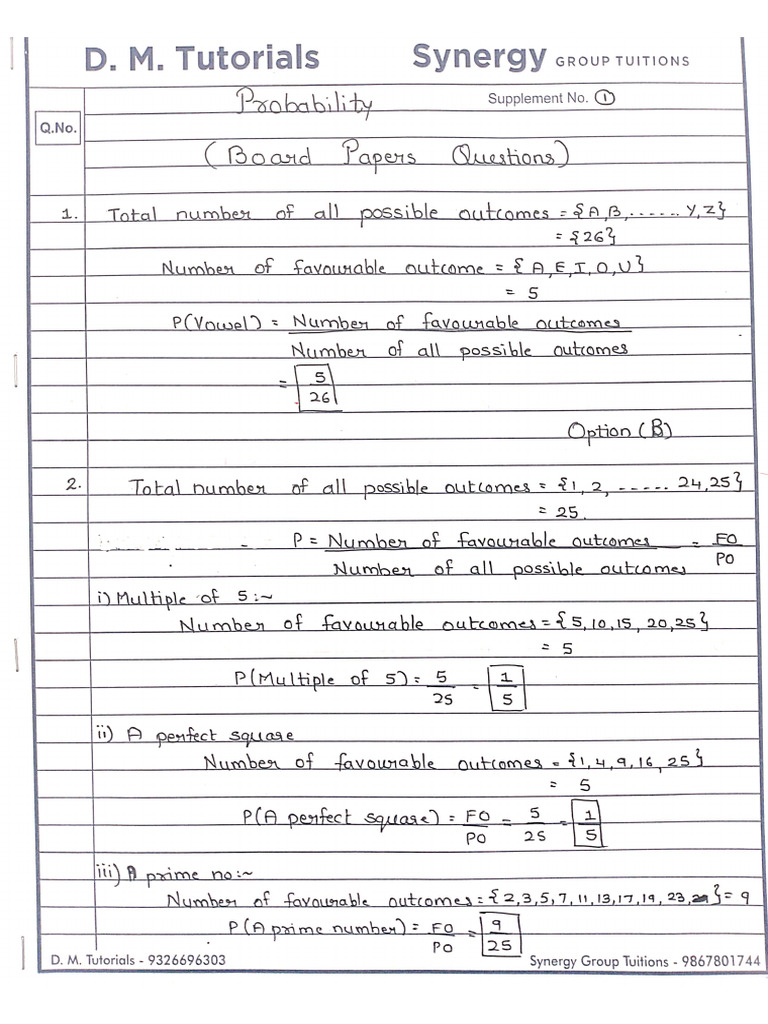 D. M. Tutorials Synergy GROUP TUITIONS
Probability Supplement No. 1
Q.No.
(Board Papers Questions)
1. Total number of all possible outcomes = {A,B,......Y,Z}
= {26}
Number of favourable outcome = {A,E,I,O,U}
= 5
P(Vowel) = Number of favourable outcomes
Number of all possible outcomes
= 5
26
Option (B)
2. Total number of all possible outcomes = {1, 2, ...... 24,25}
= 25.
P = Number of favourable outcomes = FO
Number of all possible outcomes PO
i) Multiple of 5:~
Number of favourable outcomes = {5,10,15, 20,25}
= 5
P(Multiple of 5) = 5 = 1
25 5
ii) A perfect square
Number of favourable outcomes = {1,4,9,16,25}
= 5
P(A perfect square) = FO = 5 = 1
PO 25 5
iii) A prime no:~
Number of favourable outcomes = {2,3,5,7,11,13,17,19,23,} = 9
P(A prime number) = FO = 9
PO 25
D. M. Tutorials - 9326696303 Synergy Group Tuitions - 9867801744